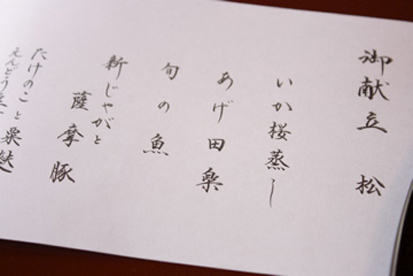 御献立 松
いか桜蒸し
あげ田楽
旬の魚
新じゃがと
薩摩豚
たけのこと粟麩
えんどう